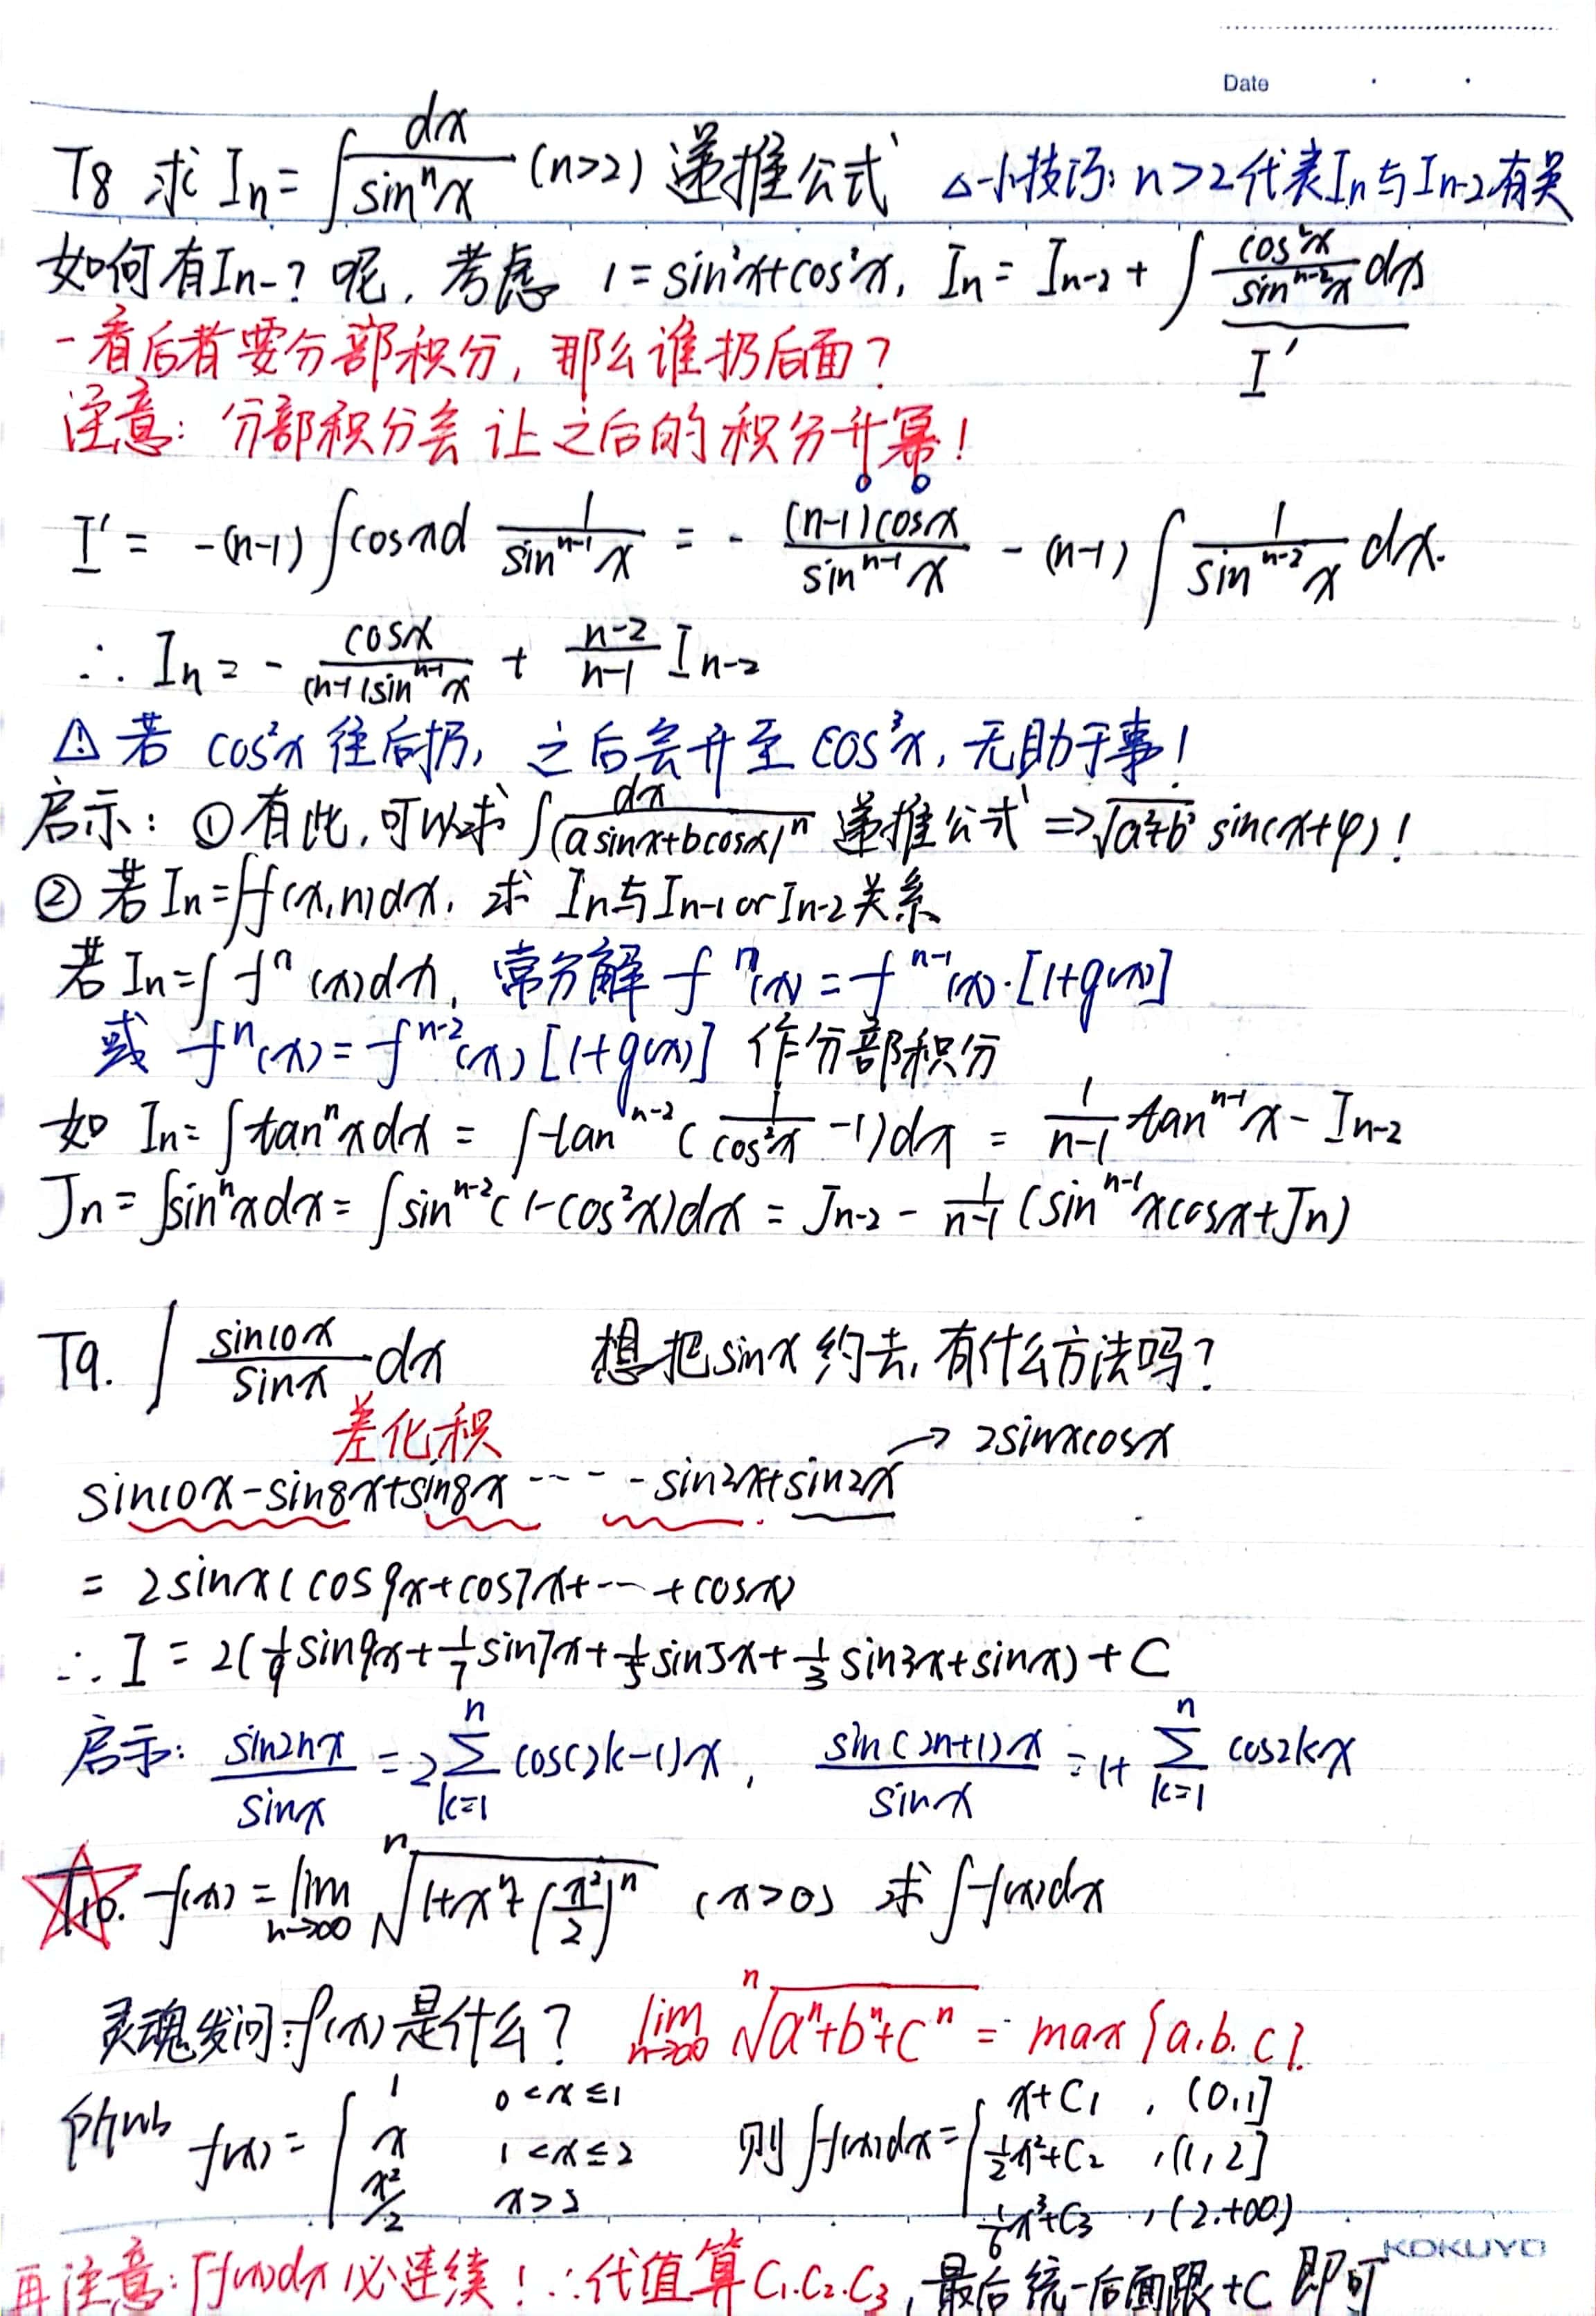 Date
T8 求 Iₙ = ∫ dx/sinⁿx (n>2) 递推公式 △小技巧: n>2代表Iₙ与Iₙ₋₂有关
如何有Iₙ₋? 呢, 考虑 1 = sin²x+cos²x, Iₙ = Iₙ₋₂ + ∫ cos²x/sinⁿ⁻²x dx
I'
一看后者要分部积分, 那么谁扔后面?
注意: 分部积分会让之后的积分升幂!
I' = -(n-1) ∫cosxd 1/sinⁿ⁻¹x = - (n-1)cosx/sinⁿ⁻¹x - (n-1) ∫ 1/sinⁿ⁻²x dx.
∴ Iₙ = - cosx/(n-1)sinⁿ⁻¹x + n-2/n-1 Iₙ₋₂
⚠ 若 cos²x 往后扔, 之后会升至 cos³x, 无助于事!
启示: ① 有此, 可以求 ∫ dx/(asinx+bcosx)ⁿ 递推公式 ⇒ √a²+b² sin(x+φ)!
② 若 Iₙ=∫f(x,n)dx, 求 Iₙ与Iₙ₋₁ or Iₙ₋₂关系
若 Iₙ=∫ fⁿ(x)dx, 常分解 fⁿ(x) = fⁿ⁻¹(x)·[1+g(x)]
或 fⁿ(x) = fⁿ⁻²(x)[1+g(x)] 作分部积分
如 Iₙ= ∫tanⁿxdx = ∫tanⁿ⁻²( 1/cos²x -1)dx = 1/n-1 tanⁿ⁻¹x - Iₙ₋₂
Jₙ = ∫sinⁿxdx = ∫sinⁿ⁻²(1-cos²x)dx = Jₙ₋₂ - 1/n-1 (sinⁿ⁻¹xcosx+Jₙ)
T9. ∫ sin10x/sinx dx 想把sinx约去, 有什么方法吗?
差化积
→ 2sinxcosx
sin10x-sin8x+sin8x ---- -sin2x+sin2x
= 2sinx(cos9x+cos7x+---+cosx)
∴ I = 2(1/9 sin9x+1/7 sin7x+1/5 sin5x+1/3 sin3x+sinx)+C
启示: sin2nx/sinx = 2 ∑ₖ₌₁ⁿ cos(2k-1)x, sin(2n+1)x/sinx = 1+ ∑ₖ₌₁ⁿ cos2kx
T10. f(x) = lim n→∞ ⁿ√1+xⁿ+(x²/2)ⁿ (x>0) 求 ∫f(x)dx
灵魂发问: f(x)是什么? lim n→∞ ⁿ√aⁿ+bⁿ+cⁿ = max{a.b.c}.
所以 f(x) = { 1 0<x≤1 则 ∫f(x)dx = { x+C₁ , (0,1]
x 1<x≤2 1/2 x²+C₂ , (1,2]
x²/2 x>2 1/6 x³+C₃ , (2,+∞)
再注意: ∫f(x)dx 必连续! ∴代值算 C₁.C₂.C₃, 最后统一后面跟+C 即可
KOKUYO